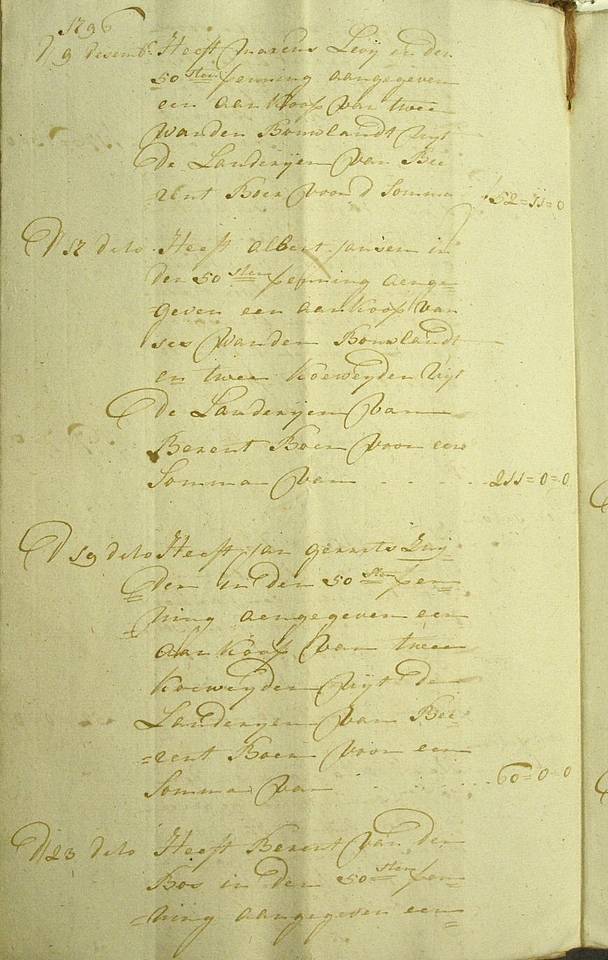 1796
D 9 desemb. Heeft marcus Levij in den
50 sten penning aangegeven
een aan Koof van twee
wanden Bouwlandt uijt
De Landerijen van Bee
=rent Boer voor d Somma 52=11=0
D 17 deto Heeft albert jansen in
den 50 sten penning aenge=
geven een aan Koof van
ses wanden Bouwlandt
en twee Koeweijden uijt
De Landerijen van
Berent Boer voor een
Somma van . . . . 211=0=0
D 19 deto Heeft jan gerrets
den in den 50 sten pen=
=ning aengegeven een
aan Koof van twee
Koeweijden uijt de
Landerijen van Bee=
=rent Boer voor een
Somma van . . . . 60=0=0
D 23 deto Heeft Berent van den
Bos in den 50 sten pen=
=ning aangegeven een